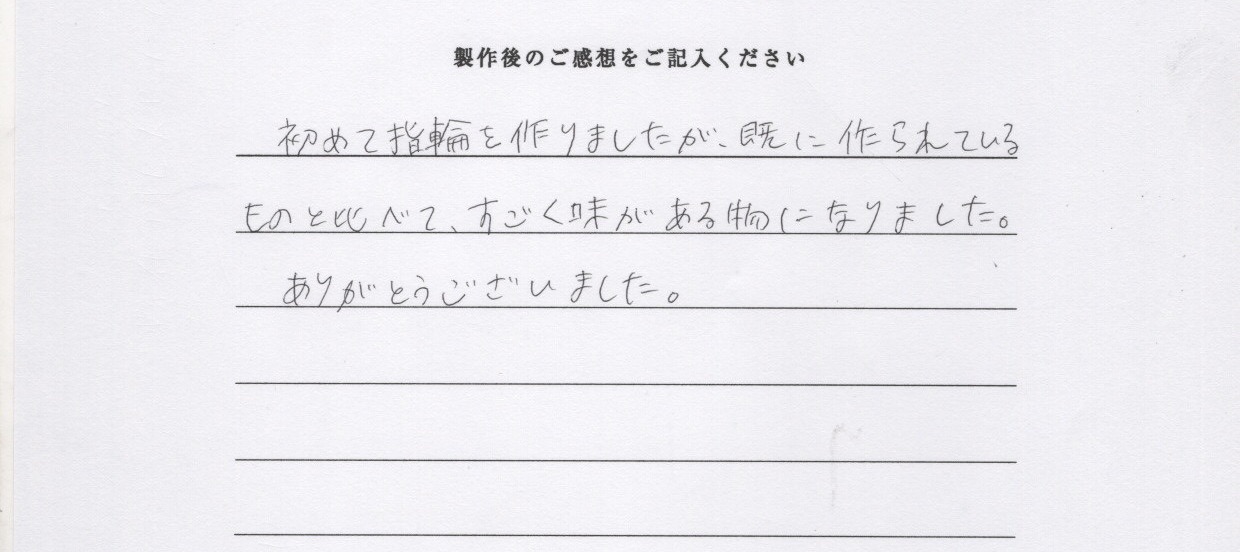 製作後のご感想をご記入ください
初めて指輪を作りましたが、既に作られている
ものと比べて、すごく味がある物になりました。
ありがとうございました。